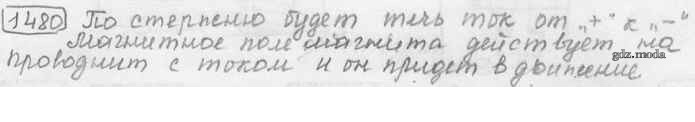 1480 По стержню будет течь ток от „+“ к „-“
Магнитное поле магнита действует на
gdz.moda
проводник с током и он придет в движение